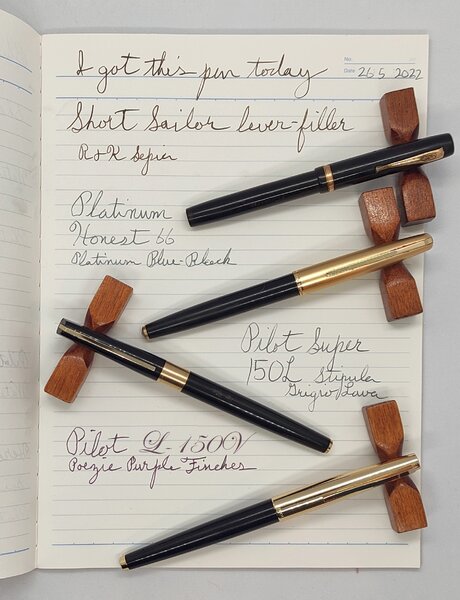 No.
Date 26 5 2022
I got this pen today
Short Sailor lever-filler
R&K Sepia
Platinum
Honest 66
Platinum Blue-Black
Pilot Super
150L Stipula
Grigio Lava
Pilot L-150V
Poezie Purple Finches